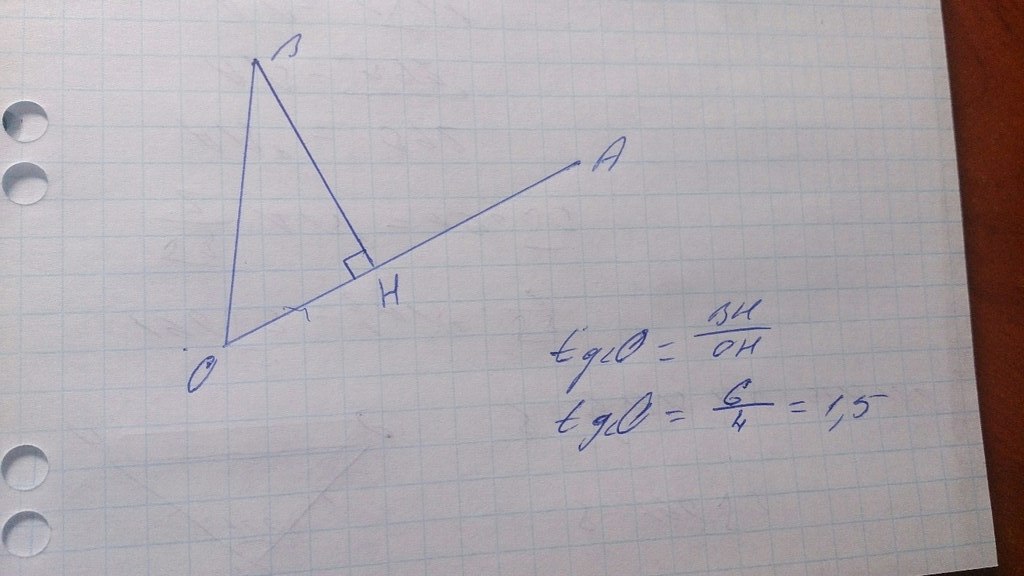 B
A
H
O
tg∠O = BH/OH
tg∠O = 6/4 = 1,5